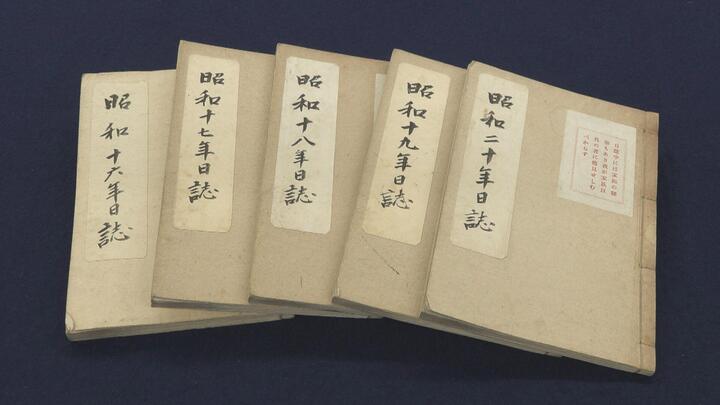 昭和十六年日誌
昭和十七年日誌
昭和十八年日誌
昭和十九年日誌
昭和二十年日誌
べからず